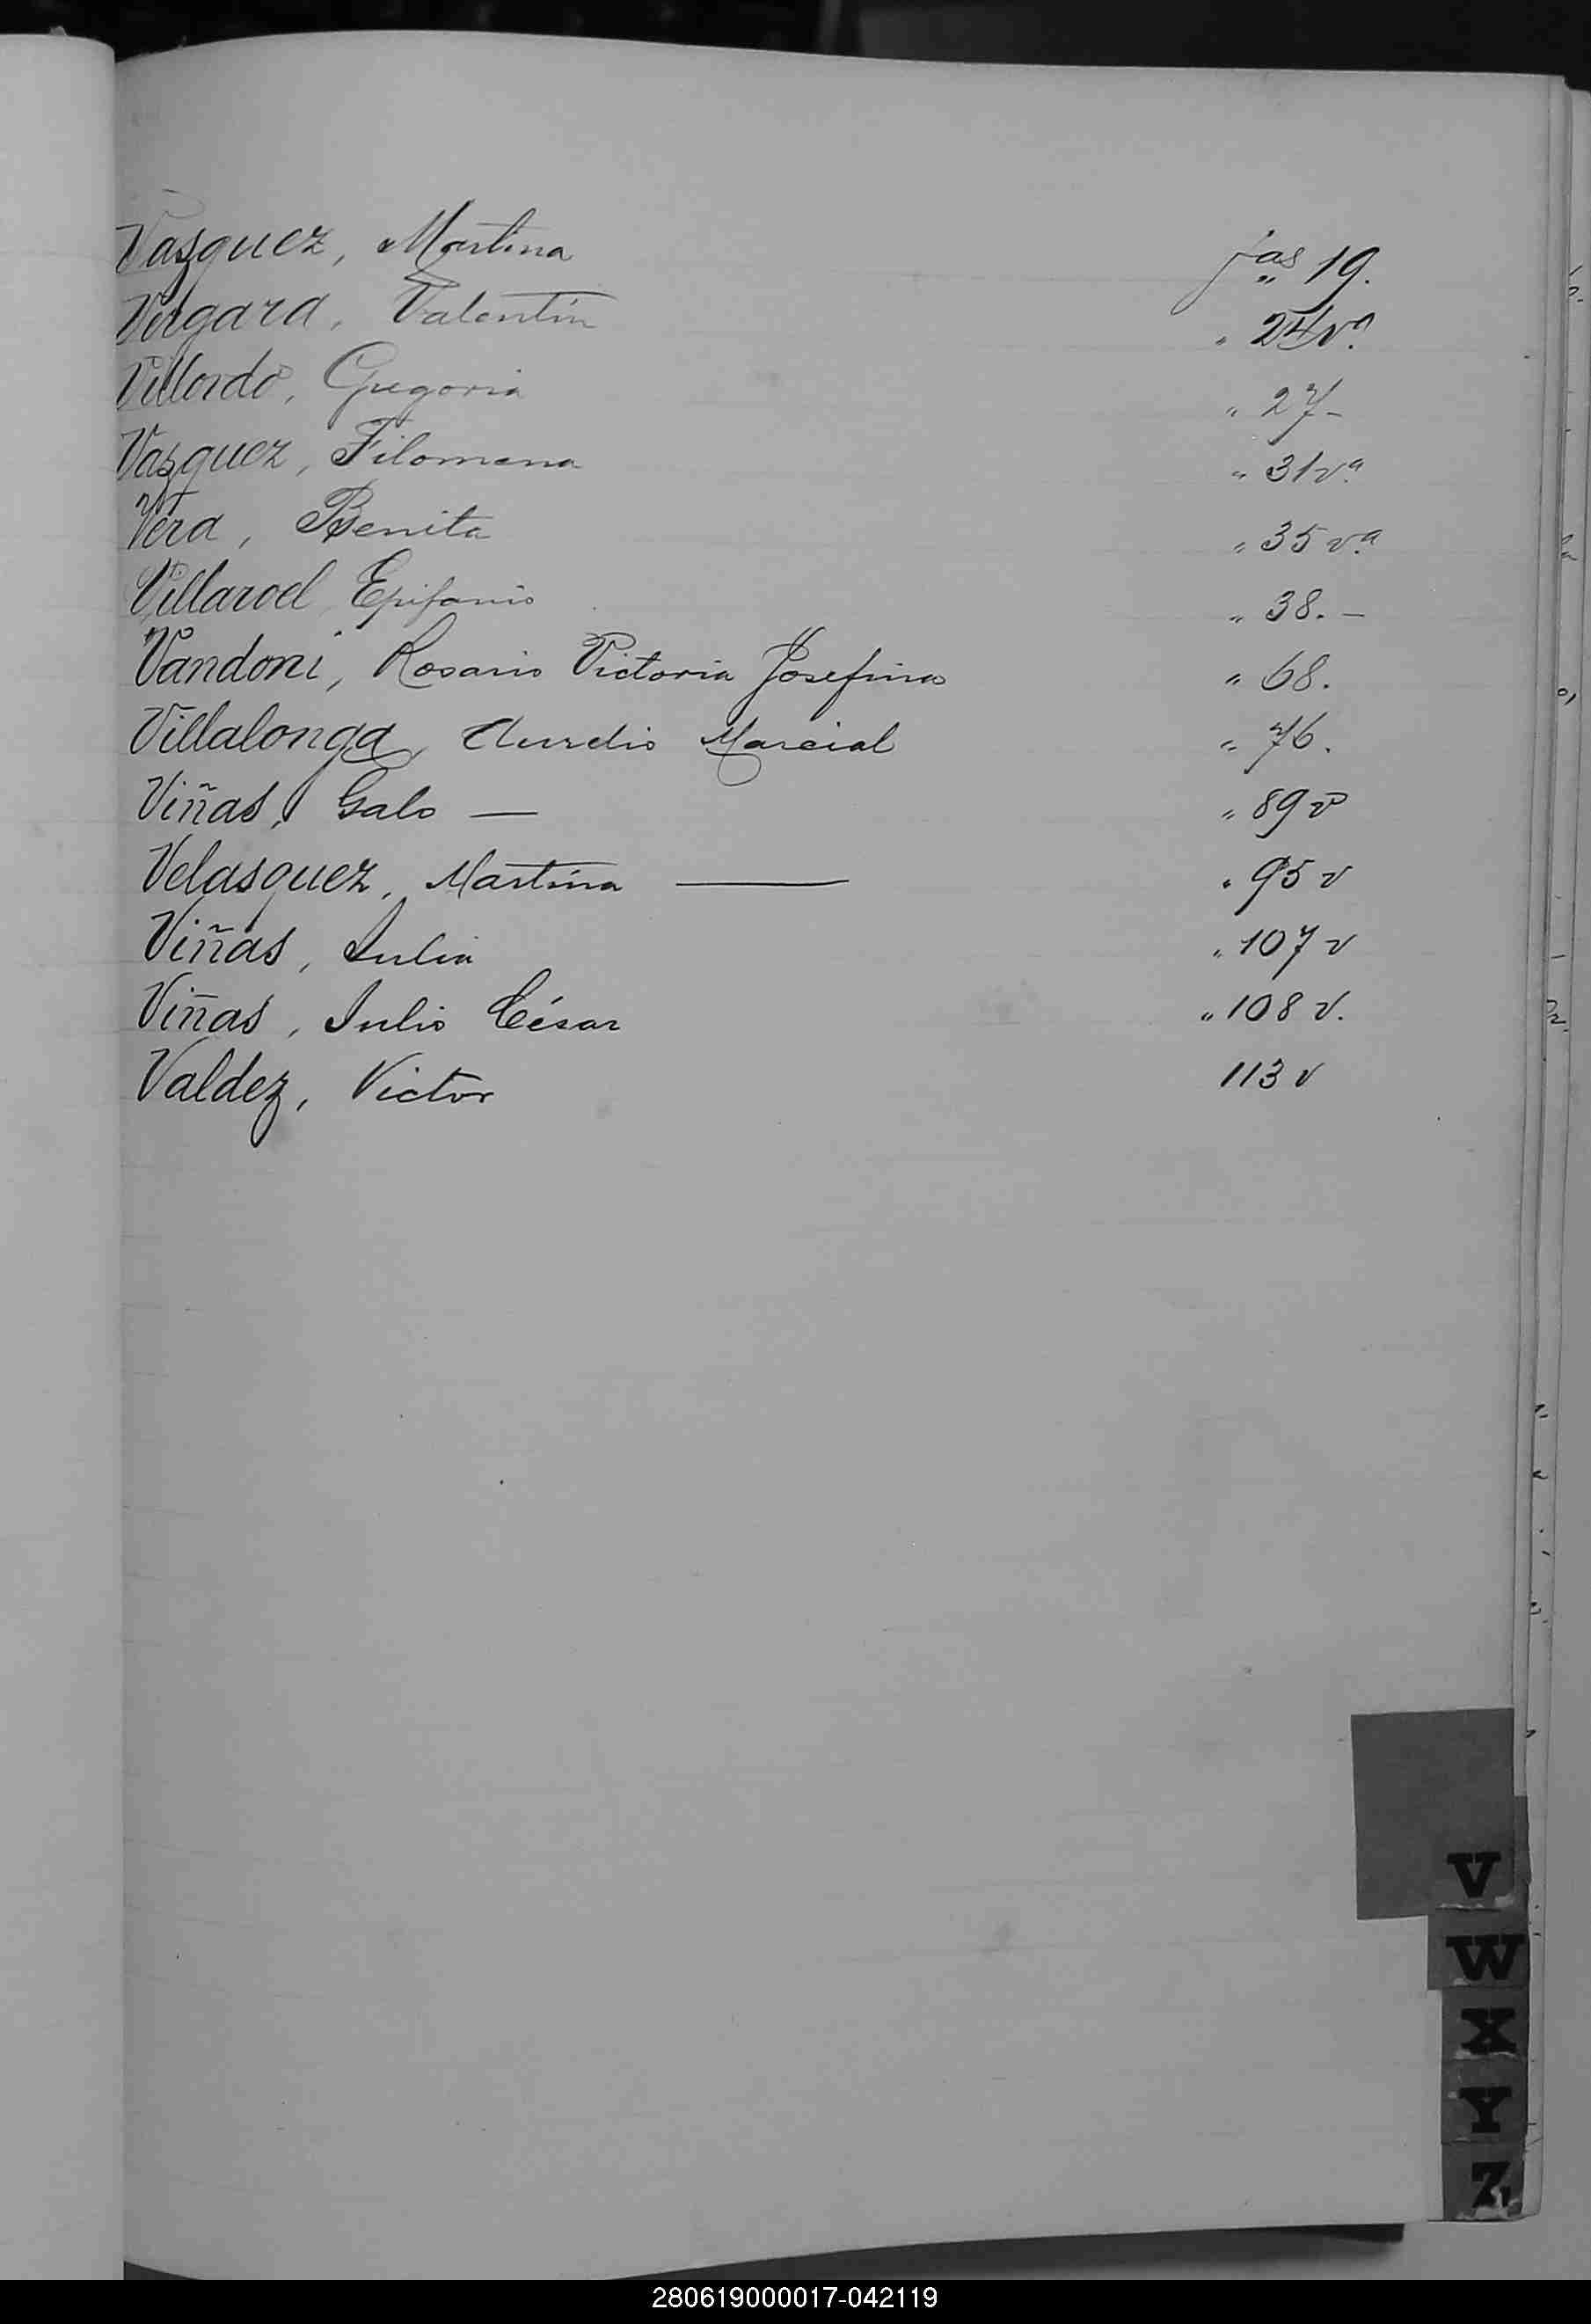 Vazquez, Martina fas 19.
Vergara, Valentin " 24 va.
Villordo, Gregoria " 27-
Vazquez, Filomena " 31 va.
Vera, Benita " 35 va.
Villaroel, Epifanio " 38. -
Vandoni, Rosario Victoria Josefina " 68.
Villalonga, Aurelio Marcial " 76.
Viñas, Galo — " 89 v
Velasquez, Martina — " 95 v
Viñas, Julia " 107 v
Viñas, Julio César " 108 v.
Valdez, Victor 113 v
V
W
X
Y
Z
280619000017-042119